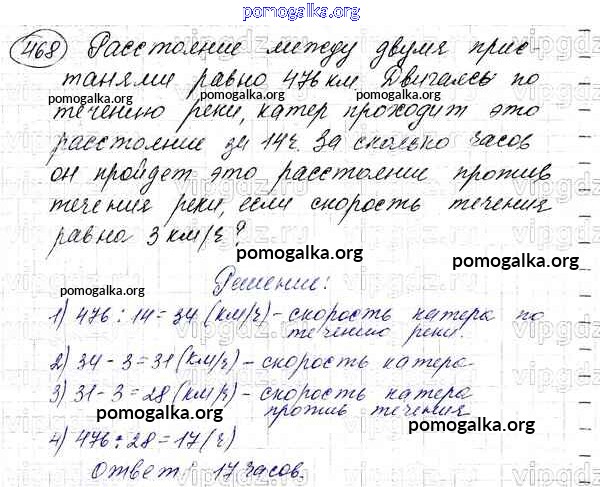 pomogalka.org
468 Расстояние между двумя прис-
танями равно 476 км. Двигаясь по
pomogalka.org pomogalka.org
течению реки, катер проходит это
расстояние за 14ч. За сколько часов
он пройдет это расстояние против
течения реки, если скорость течения
равна 3 км/ч?
pomogalka.org pomogalka.org
Решение:
pomogalka.org
1) 476 : 14 = 34 (км/ч) - скорость катера по
течению реки.
2) 34 - 3 = 31 (км/ч) - скорость катера.
3) 31 - 3 = 28 (км/ч) - скорость катера
против течения
pomogalka.org
4) 476 : 28 = 17 (ч)
pomogalka.org
Ответ: 17 часов.